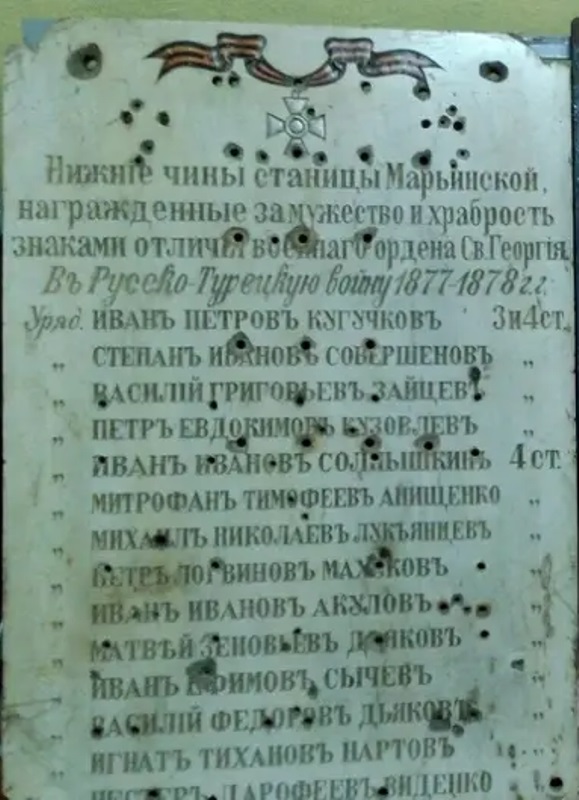 Нижніе чины станицы Марьинской,
награжденные за мужество и храбрость
знаками отличія военнаго ордена Св. Георгія.
Въ Русско-Турецкую войну 1877-1878 г.г.
Уряд. ИВАНЪ ПЕТРОВЪ КУГУЧКОВЪ 3 и 4 ст.
„ СТЕПАНЪ ИВАНОВЪ СОВЕРШЕНОВЪ „
„ ВАСИЛІЙ ГРИГОРЬЕВЪ ЗАЙЦЕВЪ „
„ ПЕТРЪ ЕВДОКИМОВЪ КУЗОВЛЕВЪ „
„ ИВАНЪ ИВАНОВЪ СОЛНЫШКИНЪ 4 ст.
„ МИТРОФАНЪ ТИМОФЕЕВЪ АНИЩЕНКО „
„ МИХАИЛЪ НИКОЛАЕВЪ ЛУКЬЯНЦЕВЪ „
„ ПЕТРЪ ЛОГВИНОВЪ „
„ ИВАНЪ ИВАНОВЪ АКУЛОВЪ „
„ МАТВѢЙ ЗЕНОВЬЕВЪ ДЬЯКОВЪ „
„ ИВАНЪ ЕФИМОВЪ СЫЧЕВЪ „
„ ВАСИЛІЙ ФЕДОРОВЪ ДЬЯКОВЪ „
„ ИГНАТЪ ТИХАНОВЪ НАРТОВЪ „
НЕСТЕРЪ ДАРОФЕЕВЪ ВИДЕНКО „